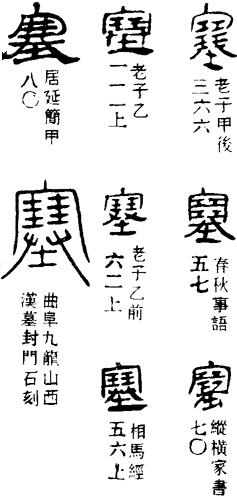 塞
老子甲後
三六六
塞
春秋事語
五七
塞
縱橫家書
七〇
塞
老子乙
一一二上
塞
老子乙前
六二上
塞
相馬經
五六上
塞
居延簡甲
八〇
塞
曲阜九龍山西
漢墓封門石刻